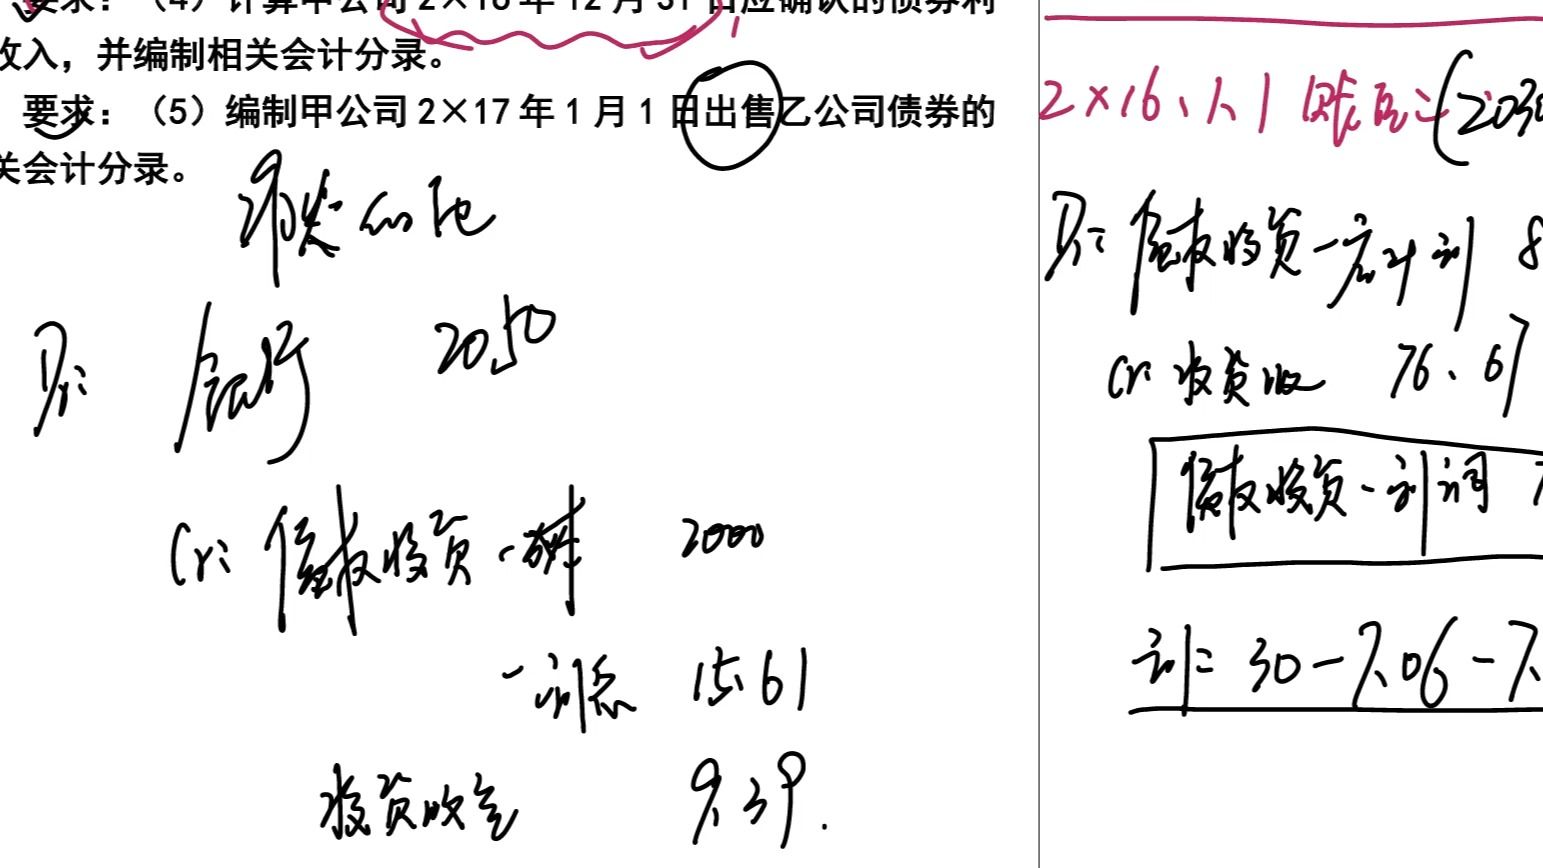 要求：（4）计算甲公司 2×16 年 12 月 31 日应确认的债券利
收入，并编制相关会计分录。
要求：（5）编制甲公司 2×17 年 1 月 1 日出售乙公司债券的
关会计分录。
Dr: 银行 2050
Cr: 债权投资 - 成本 2000
- 利息 15.61
投资收益 9.39.
2×16、1、1
Dr: 债权投资 - 应计利 8
Cr: 投资收 76.67
债权投资 - 利调 7.
利= 30 - 7.06 - 7.